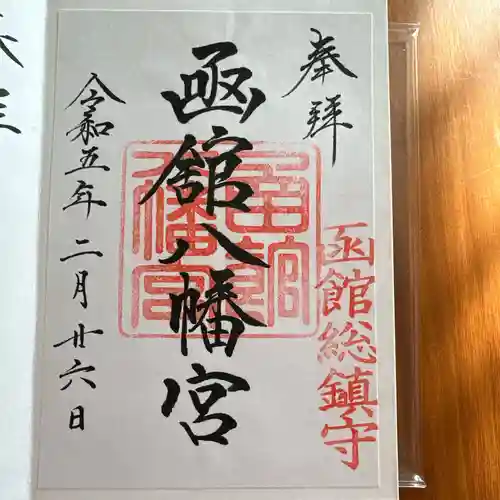 奉拝
函館総鎮守
函館八幡宮
令和五年二月廿六日